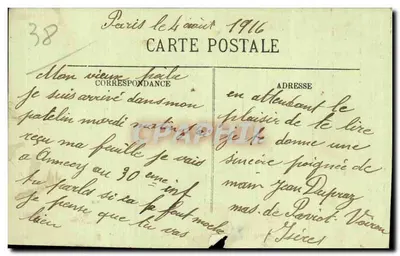 38
Paris le 4 août 1916
CARTE POSTALE
CORRESPONDANCE
ADRESSE
Mon vieux poilu
je suis arrivé dans mon
patelin mardi matin
reçu ma feuille je vais
a Annecy au 30 eme inf
tu parle si sa fout moche
Je pense que tu vas
bien
en attendant le
plaisir de te lire
je te donne une
sincère poignée de
main Jean Dupraz
mas. de Voiron
Isère